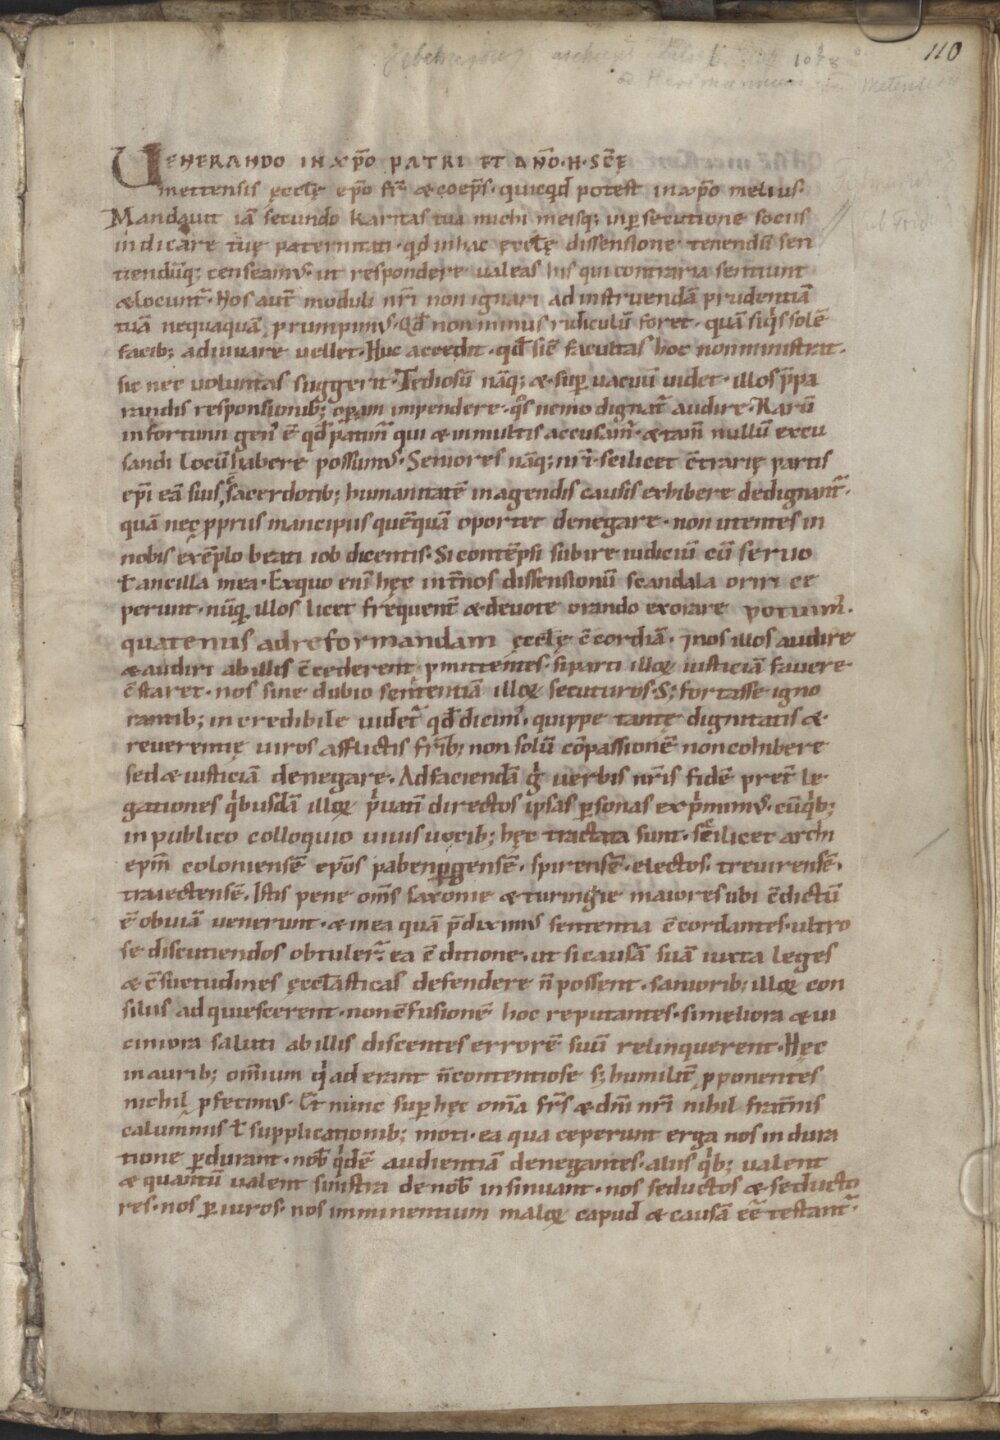 110
UENERANDO IN XP̄O PATRI ET DÑO·H·SC̄Ę
mettensis ęcclę ep̄o fr̄ & coep̄s· quicq̇d potest in xp̄o melius·
Mandauit iā secundo karitas tua michi meisq; in ꝑsecutione sociis
indicare tuę paternitati· qd in hac ęcctę dissensione tenendū sen
tiendūq; censeam᷒· ut respondere ualeas his qui contraria sentiunt
& locunt᷑· Nos aut̄ moduli nr̄i non ignari ad instruendā prudentiā
tuā nequaquā prūpim᷒· Qd̄ non minus ridiculū foret· quā siq̇s solē
facib; adiuuare uellet· Huc accedit· qd̄ sic̄ facultas hoc non ministrat·
sic nec uoluntas suggerit· Tediosū nāq; & suꝑuacuū uidet᷑· illos p̄pa
randis responsionib; operam impendere· q̊s nemo dignat᷑ audire· Rarū
infortunii gen᷒ ē qd̄ patim᷑ qui & in multis accusam᷑· & tam̄ nullū excu
sandi locū habere possum᷒· Seniores nāq; nr̄i· scilicet c̄trarię partis
ep̄i eā suis sacerdotib; humanitatē in agendis causis exhibere dedignant᷑·
quā nec ꝓpriis mancipiis quēquā oportet denegare· non utentes in
nobis exēplo beati iob dicentis· Si contēpsi subire iudiciū cū seruo
ł ancilla mea· Ex quo enī hęc int̄ nos dissensionū scandala oriri ce
perunt· nūq̄ illos licet frequent̄ & deuote orando exorare potuim᷒·
quatenus ad reformandam ęcclę c̄cordiā· ⁊ nos illos audire
& audiri ab illis c̄cederent· ꝓmittentes· si parti illoꝝ iusticiā fauere
c̄staret· nos sine dubio sententiā illoꝝ secuturos· S; fortasse igno
rantib; incredibile uidet᷑ qd̄ dicim᷒· quippe tantę dignitatis &
reuerentię uiros afflictis fr̄ib; non solū cōpassionē non cohibere
sed & iusticiā denegare· Ad faciendā g̊ uerbis nr̄is fidē pret̄ le
gationes q̇busdā illoꝝ ṗuatī directos ipsas ꝑsonas exṗmim᷒· cū q̇b;
in publico colloquio uiuis uocib; hęc tractata sunt· scilicet archi
ep̄m coloniensē ep̄os pabenꝑgensē· spirensē· electos· treuirensē·
traiectensē· Istis pene om̄s saxonie & turingie maiores ubi c̄dictū
ē obuiā uenerunt· & mea quā p̄dixim᷒ sententia c̄cordantes· ultro
se discutiendos obtuler᷑ ea c̄ditione· ut si causā suā iuxta leges
& c̄suetudines ęcclasticas defendere n̄ possent· saniorib; illoꝝ con
siliis adquiescerent· non c̄fusionē hoc reputantes· si meliora & ui
ciniora saluti ab illis discentes errorē suū relinquerent· Hęc
in aurib; omīum q̇ aderant n̄ contentiose s; humilit̄ ꝓponentes
nichil ꝓfecim᷒· Et nunc suꝑ hęc om̄a fr̄s & dm̄i nr̄i nihil frat̄nis
calumniis ł supplicationib; moti· ea qua ceperunt erga nos indura
tione ꝑdurant· nob̄ q̇dē audientiā denegantes· aliis q̇b; ualent
& quantū ualent sinistra de nob̄ insinuant· nos seductos & seducto
res· nos ꝑiuros· nos imminentium maloꝝ capud & causā eē testant᷑·